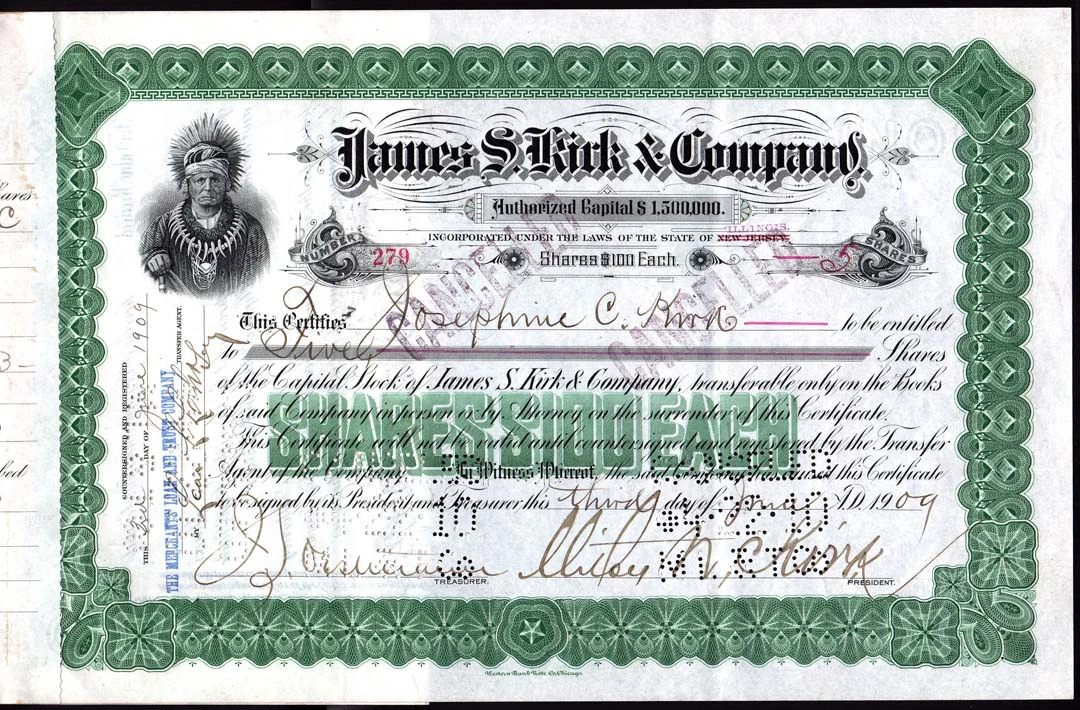 James S. Kirk & Company.
Authorized Capital $ 1,500,000.
ILLINOIS.
INCORPORATED UNDER THE LAWS OF THE STATE OF NEW JERSEY.
NUMBER
279
Shares $100 Each.
5
SHARES
CANCELLED
CANCELLED
This Certifies Josephine C. Kirk to be entitled
to Five Shares
of the Capital Stock of James S. Kirk & Company, transferable only on the Books
of said Company in person or by Attorney on the surrender of this Certificate.
This Certificate will not be valid until countersigned and registered by the Transfer
Agent of the Company.
In Witness Whereof, the said Company has caused this Certificate
to be signed by its President and Treasurer this third day of May A.D. 1909
SHARES $100 EACH
TREASURER.
Milton W. C. Kirk
PRESIDENT.
COUNTERSIGNED AND REGISTERED
THIS 3rd DAY OF June 1909
THE MERCHANTS' LOAN AND TRUST COMPANY
TRANSFER AGENT.
BY
Western Bank Note Co. Chicago.